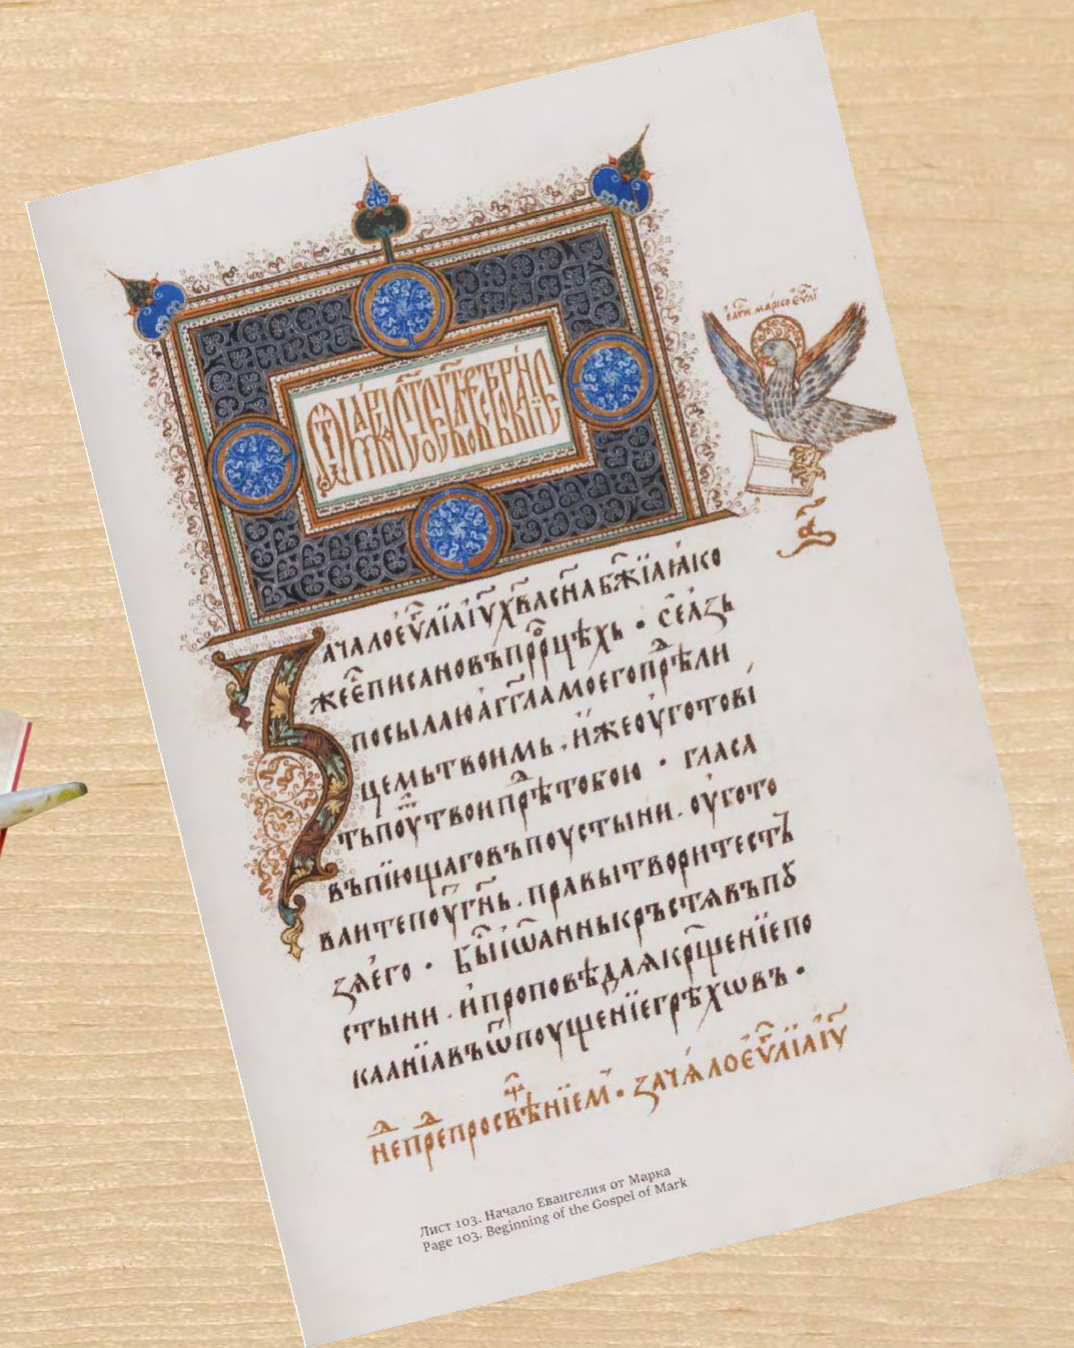 марко еѵ҃лі
Зачалоеѵ҃лїаіѵ҃хв҃асн҃абж҃їаꙗко
жеес҃писановъпррⷪцѣхъ · сеазъ
посылаюагг҃ламоегопрⷣѣли
цемьтвоимь . ижеоуготові
тьпоу҃твоипрⷣѣтобою · гласа
въпїющаговъпоустыни . оугото
ваитепоу҃гн҃ь . правытворитестъ
зѧего · бы҃іѡанныкръстѧвъпꙋ
стыни . ипроповѣдаѧкрщ҃енїепо
каанїавъѿпоущенїегрѣхѡвъ ·
не҃прⷣепросвѣⷳнїем · зачѧлоеѵ҃лїаіѵ҃
Лист 103. Начало Евангелия от Марка
Page 103. Beginning of the Gospel of Mark